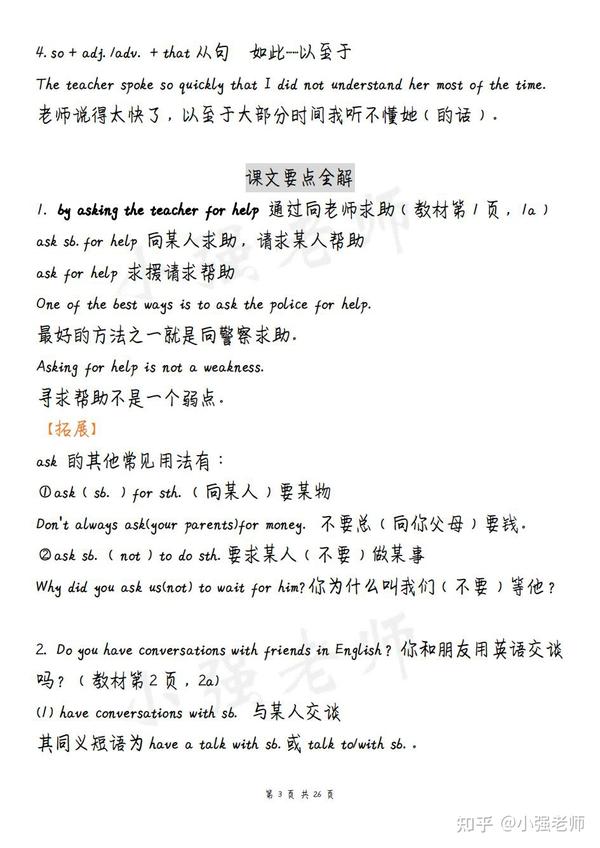 4. so + adj. /adv. + that 从句 如此……以至于
The teacher spoke so quickly that I did not understand her most of the time.
老师说得太快了，以至于大部分时间我听不懂她（的话）。
课文要点全解
1. by asking the teacher for help 通过向老师求助（教材第1页，1a）
ask sb. for help 向某人求助，请求某人帮助
ask for help 求援请求帮助
One of the best ways is to ask the police for help.
最好的方法之一就是向警察求助。
Asking for help is not a weakness.
寻求帮助不是一个弱点。
【拓展】
ask 的其他常见用法有：
①ask（sb.）for sth.（向某人）要某物
Don't always ask(your parents)for money. 不要总（向你父母）要钱。
②ask sb.（not）to do sth. 要求某人（不要）做某事
Why did you ask us(not) to wait for him?你为什么叫我们（不要）等他？
2. Do you have conversations with friends in English？你和朋友用英语交谈
吗？（教材第2页，2a）
(1) have conversations with sb. 与某人交谈
其同义短语为 have a talk with sb. 或 talk to/with sb. 。
第 3 页 共 26 页
小强老师
小强老师
知乎 @小强老师